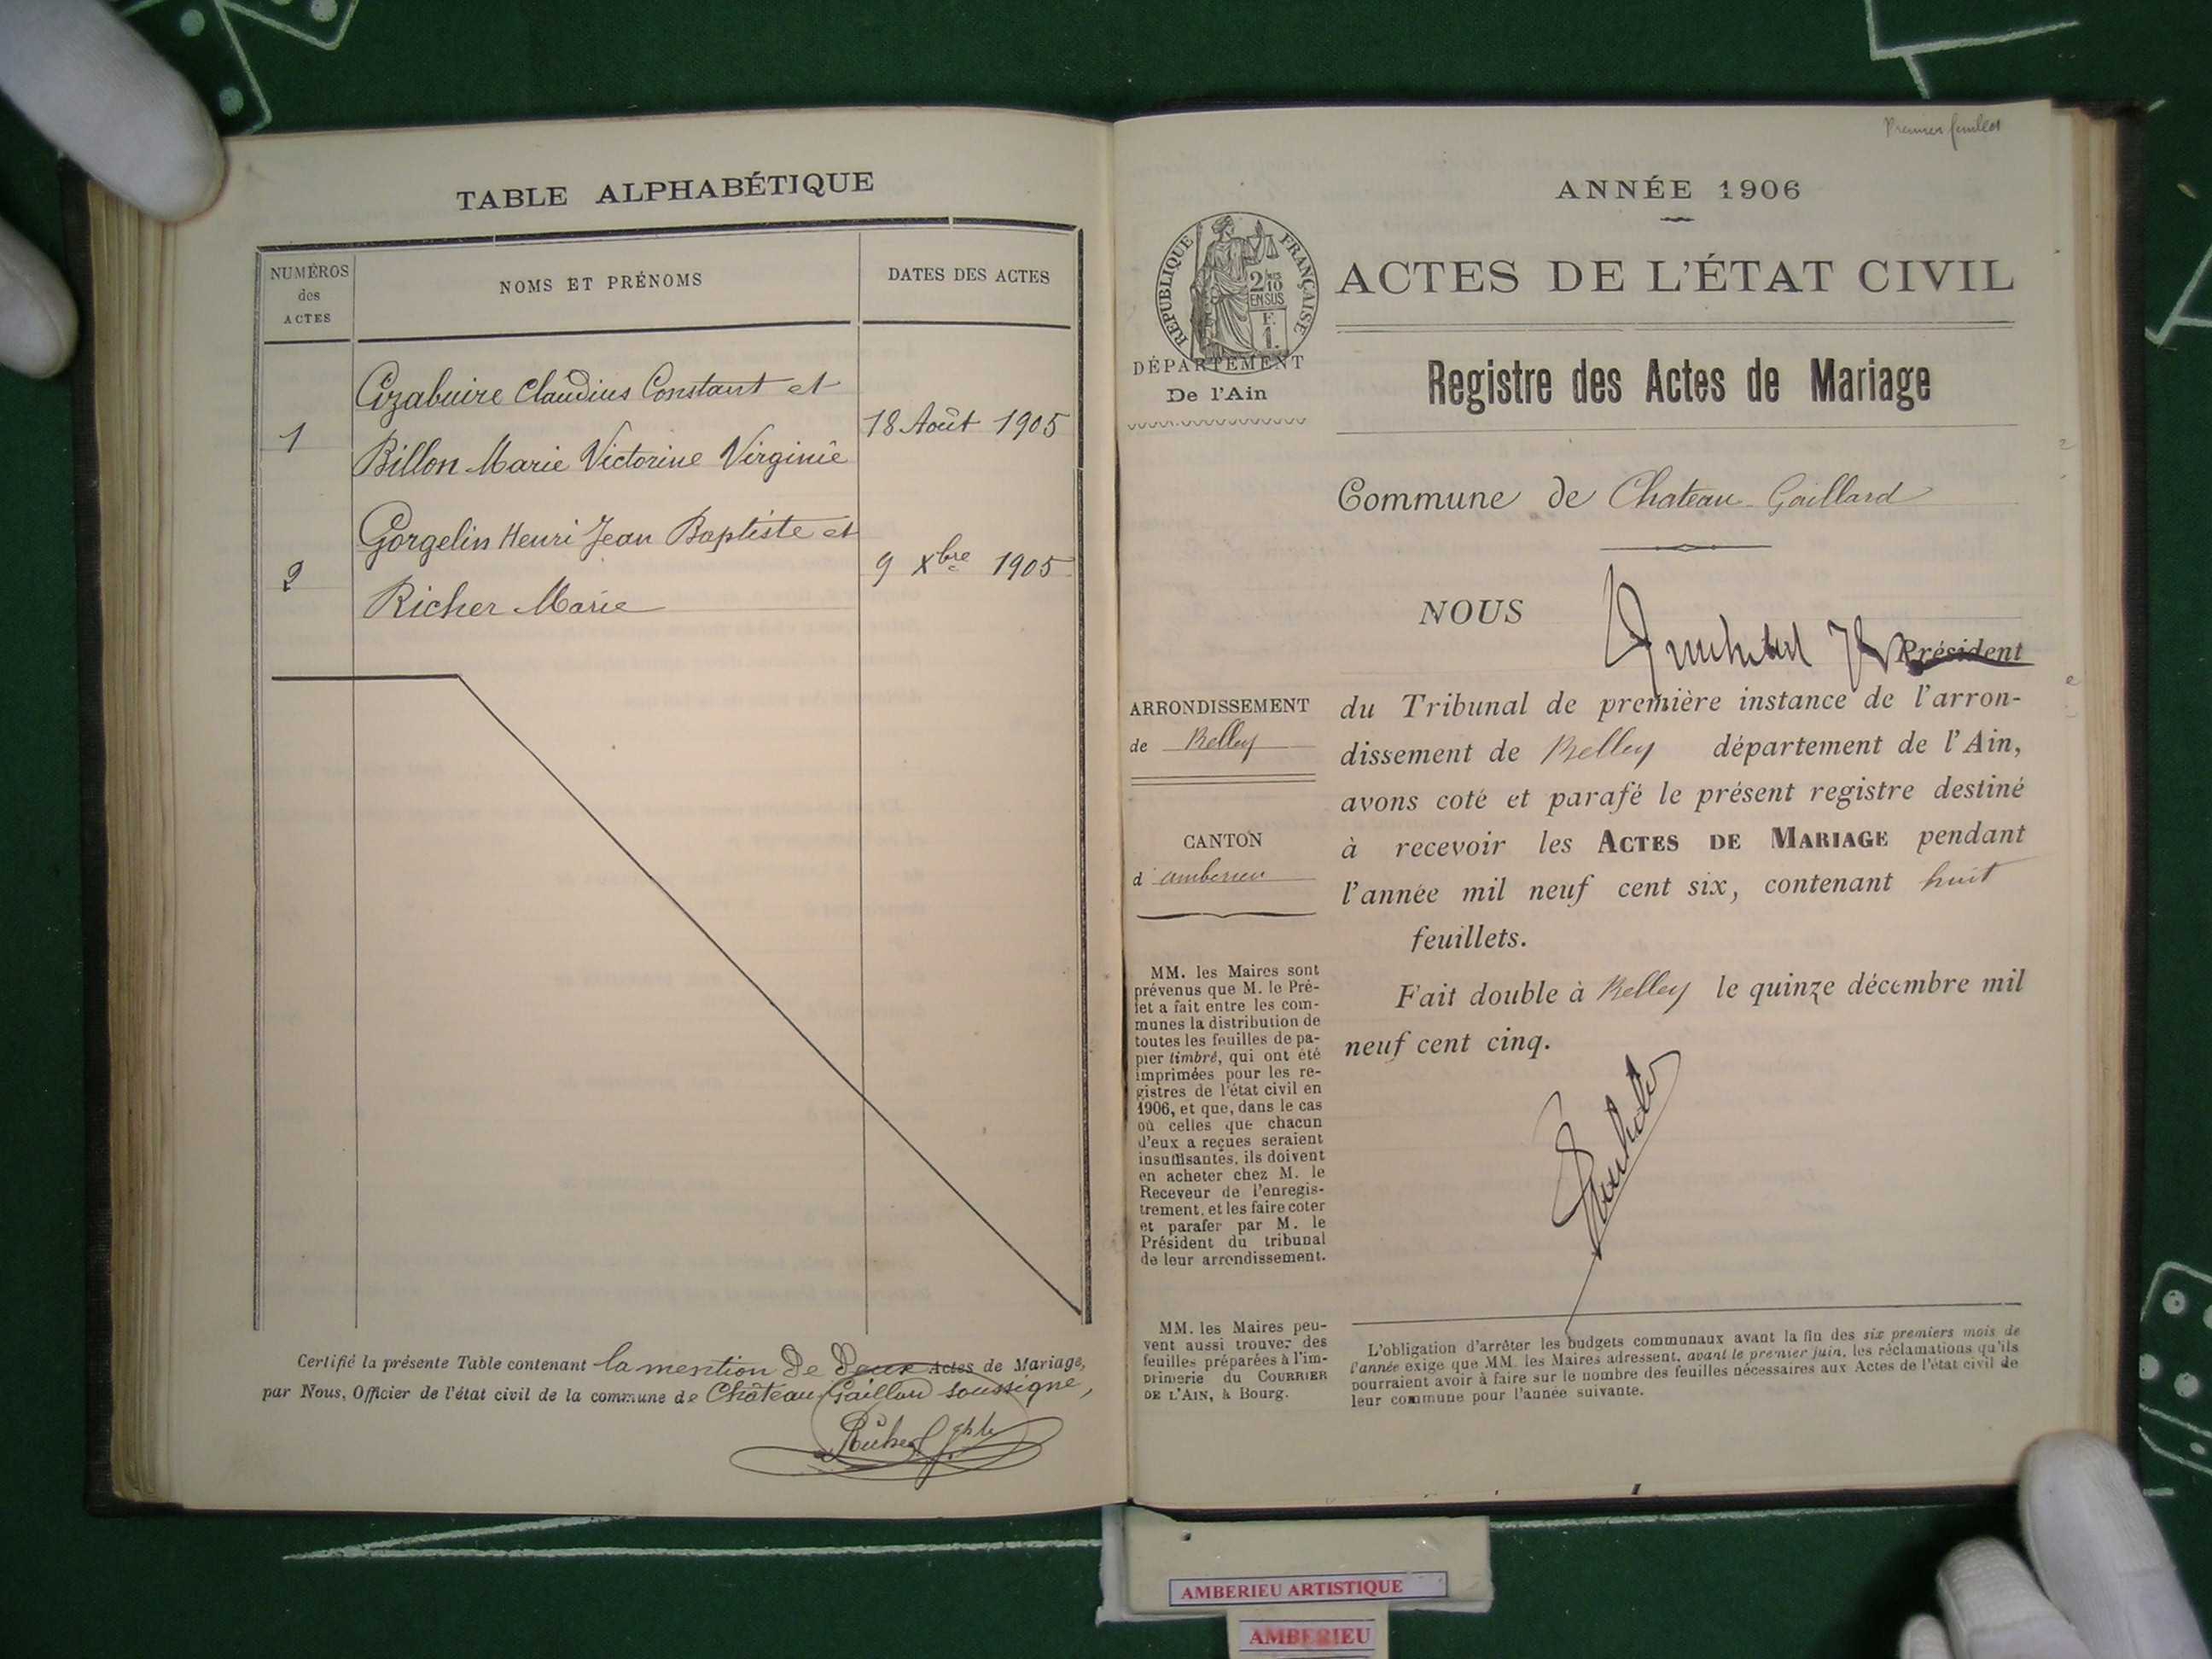 TABLE ALPHABÉTIQUE
NUMÉROS
des
ACTES
NOMS ET PRÉNOMS
DATES DES ACTES
1
Cizabuire Claudius Constant et
Billon Marie Victorine Virginie
18 Août 1905
2
Gorgelin Henri Jean Baptiste et
Richer Marie
9 Xbre 1905
Certifié la présente Table contenant la mention de deux Actes de Mariage,
par Nous, Officier de l'état civil de la commune de Château-Gaillard soussigné,
Premier feuillet
ANNÉE 1906
RÉPUBLIQUE FRANÇAISE
2/10
EN SUS
F.
1.
DÉPARTEMENT
De l'Ain
ACTES DE L'ÉTAT CIVIL
Registre des Actes de Mariage
Commune de Chateau-Gaillard
NOUS
Président
du Tribunal de première instance de l'arron-
dissement de Belley département de l'Ain,
avons coté et parafé le présent registre destiné
à recevoir les ACTES DE MARIAGE pendant
l'année mil neuf cent six, contenant huit
feuillets.
Fait double à Belley le quinze décembre mil
neuf cent cinq.
ARRONDISSEMENT
de Belley
CANTON
d'amberieu
MM. les Maires sont
prévenus que M. le Pré-
fet a fait entre les com-
munes la distribution de
toutes les feuilles de pa-
pier timbré, qui ont été
imprimées pour les re-
gistres de l'état civil en
1906, et que, dans le cas
où celles que chacun
d'eux a reçues seraient
insuffisantes, ils doivent
en acheter chez M. le
Receveur de l'enregis-
trement, et les faire coter
et parafer par M. le
Président du tribunal
de leur arrondissement.
MM. les Maires peu-
vent aussi trouver des
feuilles préparées à l'im-
primerie du COURRIER
DE L'AIN, à Bourg.
L'obligation d'arrêter les budgets communaux avant la fin des six premiers mois de
l'année exige que MM. les Maires adressent, avant le premier juin, les réclamations qu'ils
pourraient avoir à faire sur le nombre des feuilles nécessaires aux Actes de l'état civil de
leur commune pour l'année suivante.
AMBERIEU ARTISTIQUE
AMBERIEU